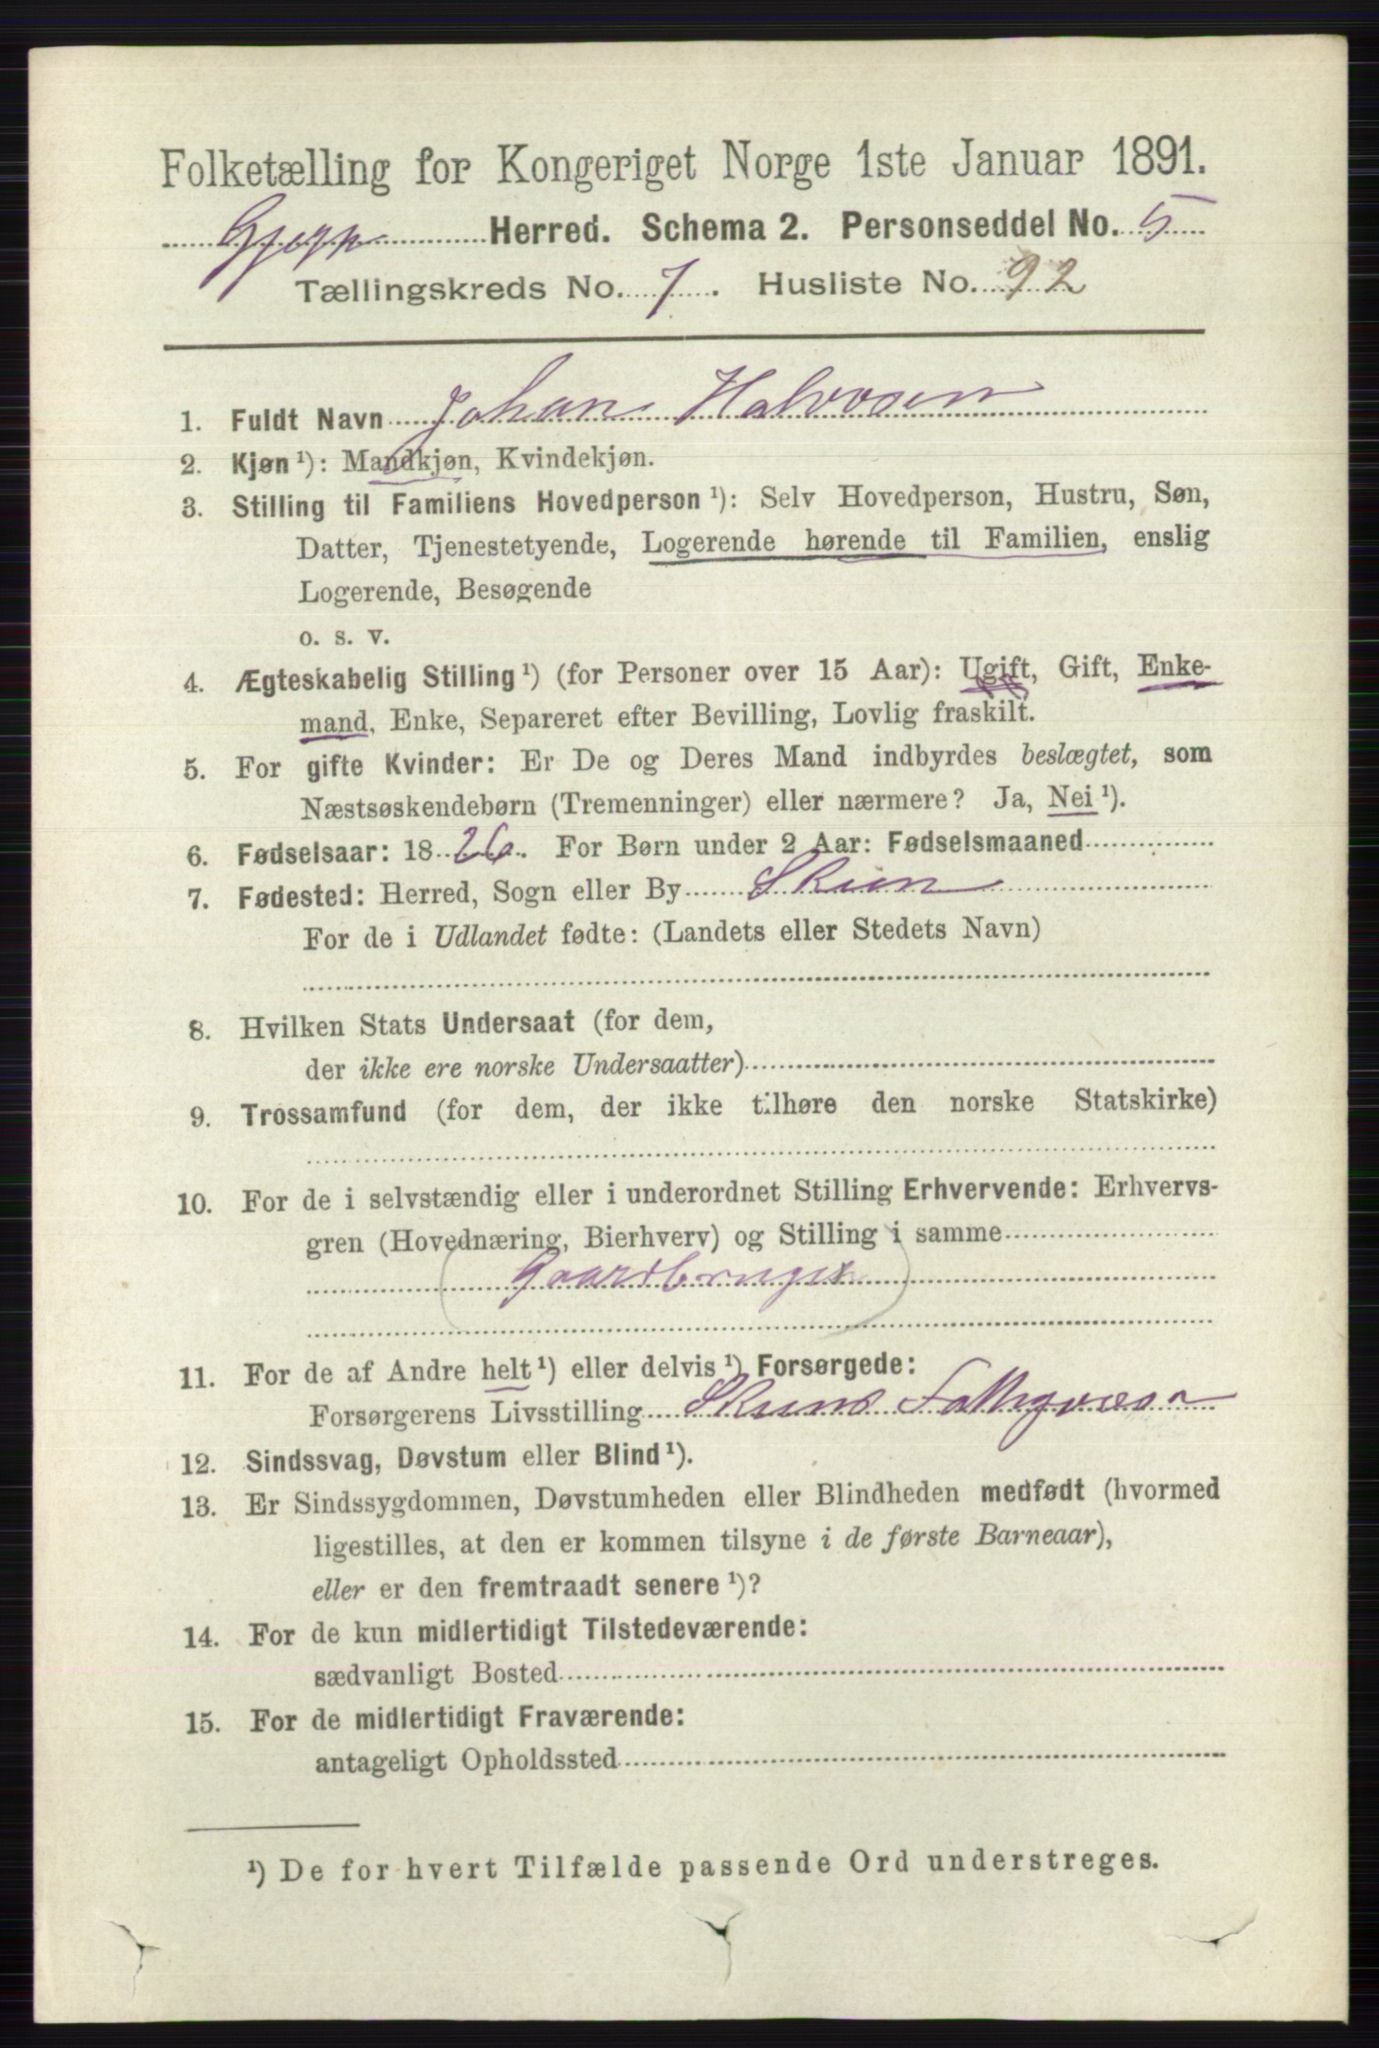 Folketælling for Kongeriget Norge 1ste Januar 1891.
Gjerp Herred. Schema 2. Personseddel No. 5
Tællingskreds No. 7. Husliste No. 92
1. Fuldt Navn Johan Halvorsen
2. Kjøn ¹): Mandkjøn, Kvindekjøn.
3. Stilling til Familiens Hovedperson ¹): Selv Hovedperson, Hustru, Søn,
Datter, Tjenestetyende, Logerende hørende til Familien, enslig
Logerende, Besøgende
o. s. v.
4. Ægteskabelig Stilling ¹) (for Personer over 15 Aar): Ugift, Gift, Enke-
mand, Enke, Separeret efter Bevilling, Lovlig fraskilt.
5. For gifte Kvinder: Er De og Deres Mand indbyrdes beslægtet, som
Næstsøskendebørn (Tremenninger) eller nærmere? Ja, Nei ¹).
6. Fødselsaar: 1826. For Børn under 2 Aar: Fødselsmaaned
7. Fødested: Herred, Sogn eller By Skien
For de i Udlandet fødte: (Landets eller Stedets Navn)
8. Hvilken Stats Undersaat (for dem,
der ikke ere norske Undersaatter)
9. Trossamfund (for dem, der ikke tilhøre den norske Statskirke)
10. For de i selvstændig eller i underordnet Stilling Erhvervende: Erhvervs-
gren (Hovednæring, Bierhverv) og Stilling i samme
(Gaardbruger)
11. For de af Andre helt ¹) eller delvis ¹) Forsørgede:
Forsørgerens Livsstilling Skiens
12. Sindssvag, Døvstum eller Blind ¹).
13. Er Sindssygdommen, Døvstumheden eller Blindheden medfødt (hvormed
ligestilles, at den er kommen tilsyne i de første Barneaar),
eller er den fremtraadt senere ¹)?
14. For de kun midlertidigt Tilstedeværende:
sædvanligt Bosted
15. For de midlertidigt Fraværende:
antageligt Opholdssted
¹) De for hvert Tilfælde passende Ord understreges.